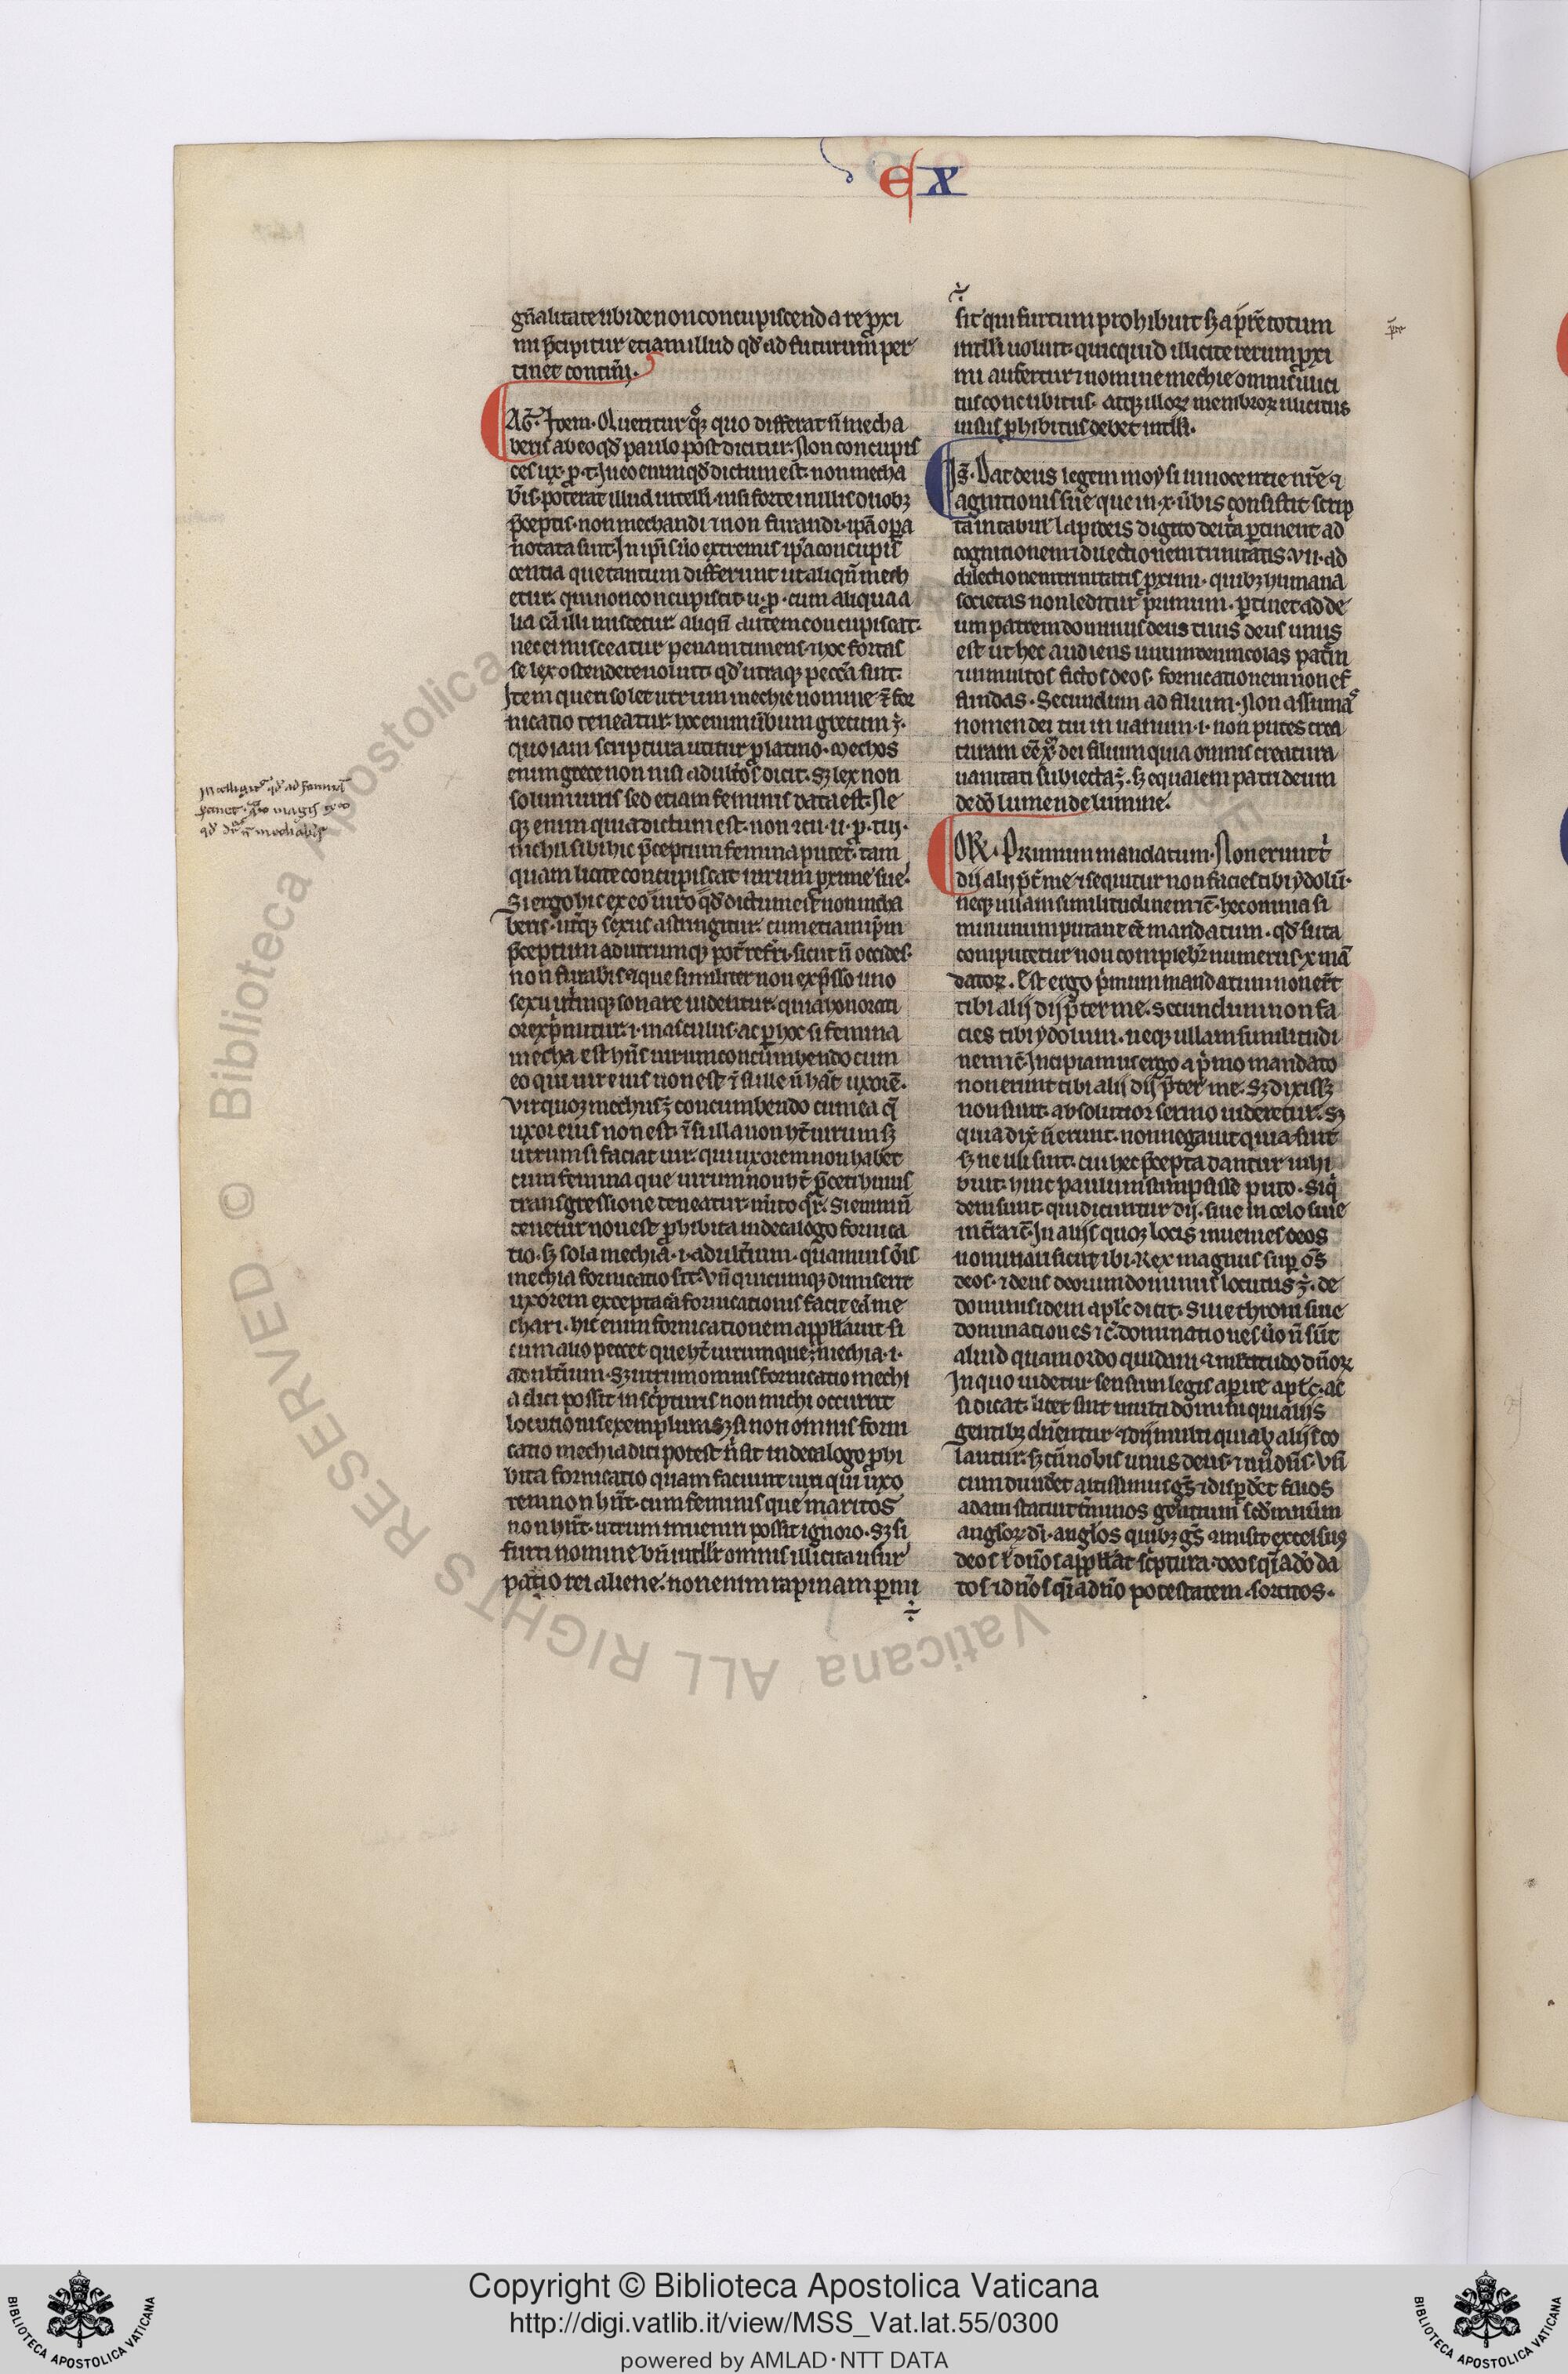 EX
gn̄alitate ubi de non concupiscenda re ꝓxi
mi p̄cipitur etiam illud qd̓ ad futurum per
tinet contin̄i.
AG̃. Item. Queritur qͦqꝫ quo differat n̄ mecha
beris ab eo qd̓ paulo post dicitur. Non concupis
ces ux. p. t. In eo enim qd̓ dictum est. non mecha
b̄is. poterat illud intelli. nisi forte in illis duobꝫ
p̄ceptis. non mechandi ⁊ non furandi. ip̄a oꝑa
notata sint. In ip̄is ū̓o extremis ip̄a concupis
centia que tantum differunt ut aliqn̄ mech
etur. qui non concupiscit. u. p. cum aliqua a
lia cā illi miscetur. aliqn̄ autem concupiscat.
nec ei misceatur penam timens. ⁊ hoc fortas
se lex ostendere uoluit. qd̓ utraqꝫ pecc̄a sint.
Item queri solet utrum mechie nomine ⁊̄ for
nicatio teneatur. hoc enim ūbum grecum ē.
quo iam scriptura utitur ꝓ latino. mechos
enim grece non nisi adult̓os dicit. Sꝫ lex non
solum uiris sed etiam feminis data est. Ne
qꝫ enim quia dictum est. non ⁊cu. u. p. tui.
nichil sibi hic p̄ceptum femina putet. tam
quam licite concupiscat uirum ꝓxime sue.
Si ergo hic ex eo uiro qd̓ dictum est non mcha
beris. ut̓qꝫ sexus astringitur. cum etiam ip̄m
p̄ceptum ad utrumqꝫ pot̄ refr̄i. sicut n̄ occides.
non furab̓is. ⁊ que similiter non exp̄sso uno
sexu ut̓imqꝫ sonare uidentur. quia honorati
ore exp̓mitur. i. masculus. ac ꝑ hoc si femina
mecha est hn̄s uirum concumbendo cum
eo qui uir eius non est ⁊̄ si ille n̄ hāt uxorē.
Vir quoꝫ mechus ē. concumbendo cum ea q̄
uxor eius non est. ⁊̄ si illa non ht̄ uirum sꝫ
utrum si faciat uir. qui uxorem non habet
cum femina que uirum non ht̄. p̄cepti huius
transgressione teneatur. m̓ito qr̄. Si enim n̄
tenetur non est ꝓhibita in decalogo fornica
tio. sꝫ sola mechia. i. adult̓ium. quamuis ōis
mechia fornicatio sit. Vn̄ quicumqꝫ dimiserit
uxorem excepta cā fornicationis facit eā me
chari. hic enim fornicationem appellauit. si
cum alio peccet que ht̄ uirum que ē mechia. i.
adult̓ium. Sꝫ utrum omnis fornicatio mechi
a dici possit in sc̓pturis non michi occurrit
locutionis exemplum. sꝫ si non omnis forni
catio mechia dici potest n̄ sit in decalogo ꝓhi
bita fornicatio quam faciunt uiri qui uxo
rem non hn̄t. cum feminis que maritos
non hn̄t. utrum inueniri possit ignoro. Sꝫ si
furti nomine bn̄ intelli omnis illicita usur
patio rei aliene. non enim rapinam ꝑmi
sit qui furtum prohibuit sꝫ a p̄te totum
intelli uoluit. quicquid illicite rerum ꝓxi
mi aufertur ⁊ nomine mechie omnis illici
tus concubitus. atqꝫ illorꝫ membrorꝫ illicitus
usus ꝓhibitus debet intelli.
IS̄. Dat deus legem moysi innocentie nr̄e ⁊
agnitionis sue que in. x. ūbis consistit scrip
ta in tabul̓ lapideis digito dei. t̓a ꝑtinent ad
cognitionem ⁊ dilectionem trinitatis. vii. ad
dilectionem trinitatis ꝓximi. quibꝫ humana
societas non leditur. p̓mum. ꝑtinet ad de
um patrem dominus deus tuus deus unus
est ut hec audiens unum deum colas patr̄m
⁊ in multos fictos deos. fornicationem non ef
fundas. Secundum ad filium. Non assumasͣ
nomen dei tui in uanum. i. non putes crea
turam eē xͫ dei filium quia omnis creatura
uanitati subiecta ē. sꝫ equalem patri deum
de dō lumen de lumine.
ORI. Primum mandatum. Non erunt t̓
dij alij p̄t̓ me. ⁊ sequitur non facies tibi ydolū.
neqꝫ ullam similitudinem ⁊c̄. hec omnia si
mul unum putant eē mandatum. qd̓ si ita
computetur non complebit̓ numerus. x. mā
datorꝫ. Est ergo p̓mum mandatum non er̄t
tibi alij dij p̄ter me. secundum non fa
cies tibi ydolum. neqꝫ ullam similitudi
nem ⁊c̄. Incipiamus ergo a p̓mo mandato
non erunt tibi alij dij p̄ter me. Sꝫ dixissꝫ
non sunt. absolutior sermo uideretur. sꝫ
quia dix̄ n̄ erunt. non negauit quia sint
sꝫ ne illi sint. cui hec p̄cepta dantur inhi
buit. hinc paulum sumpsisse puto. Siq̓
dem sunt qui dicuntur dij. siue in celo siue
in t̓ra ⁊c̄. In alijs quoqꝫ locis inuenies deos
nominari sicut ibi. Rex magnus suꝑ ōs
deos. ⁊ deus deorum dominus locutus ē. de
dominis idem apl̄s dicit. Siue throni siue
dominationes ⁊c̄. dominationes ū̓o n̄ sūt
aliud quam ordo quidam ⁊ multitudo dn̄orꝫ
In quo uidetur sensum legis aperire apl̄s. ac
si dicat. licet sint multi domini qui alijs
gentibꝫ dn̄entur. ⁊ dij multi qui ab alijs co
lantur. sꝫ tn̄ nobis unus deus. ⁊ un̓ dn̄s. Vn̄
cum diuid̓et altissimus gēs ⁊ disꝑd̓et filios
adam statuit t̓minos gentium sed'm nūm
anglorꝫ di. anglos quibꝫ gēs ⁊misit excelsus
deos ł dn̄os appellat sc̓ptura. deos q̄i a dō da
tos ⁊ dn̄os q̄i a dn̄o potestatem sortitos.
Copyright © Biblioteca Apostolica Vaticana
http://digi.vatlib.it/view/MSS_Vat.lat.55/0300
powered by AMLAD·NTT DATA
BIBLIOTECA APOSTOLICA VATICANA
BIBLIOTECA APOSTOLICA VATICANA
© Biblioteca Apostolica Vaticana ALL RIGHTS RESERVED